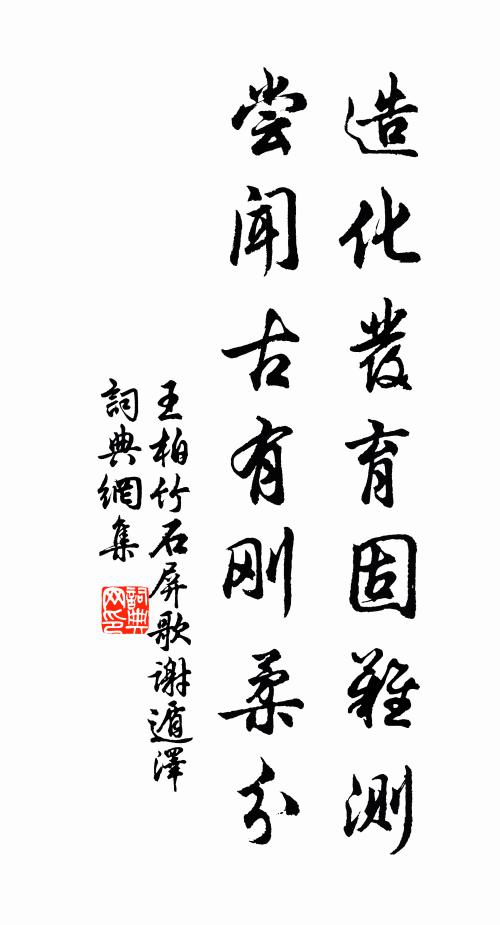 造化發育固難測
尝闻古有刚柔分
王柏竹石屏歌谢遁澤
詞典網集
詞典网印